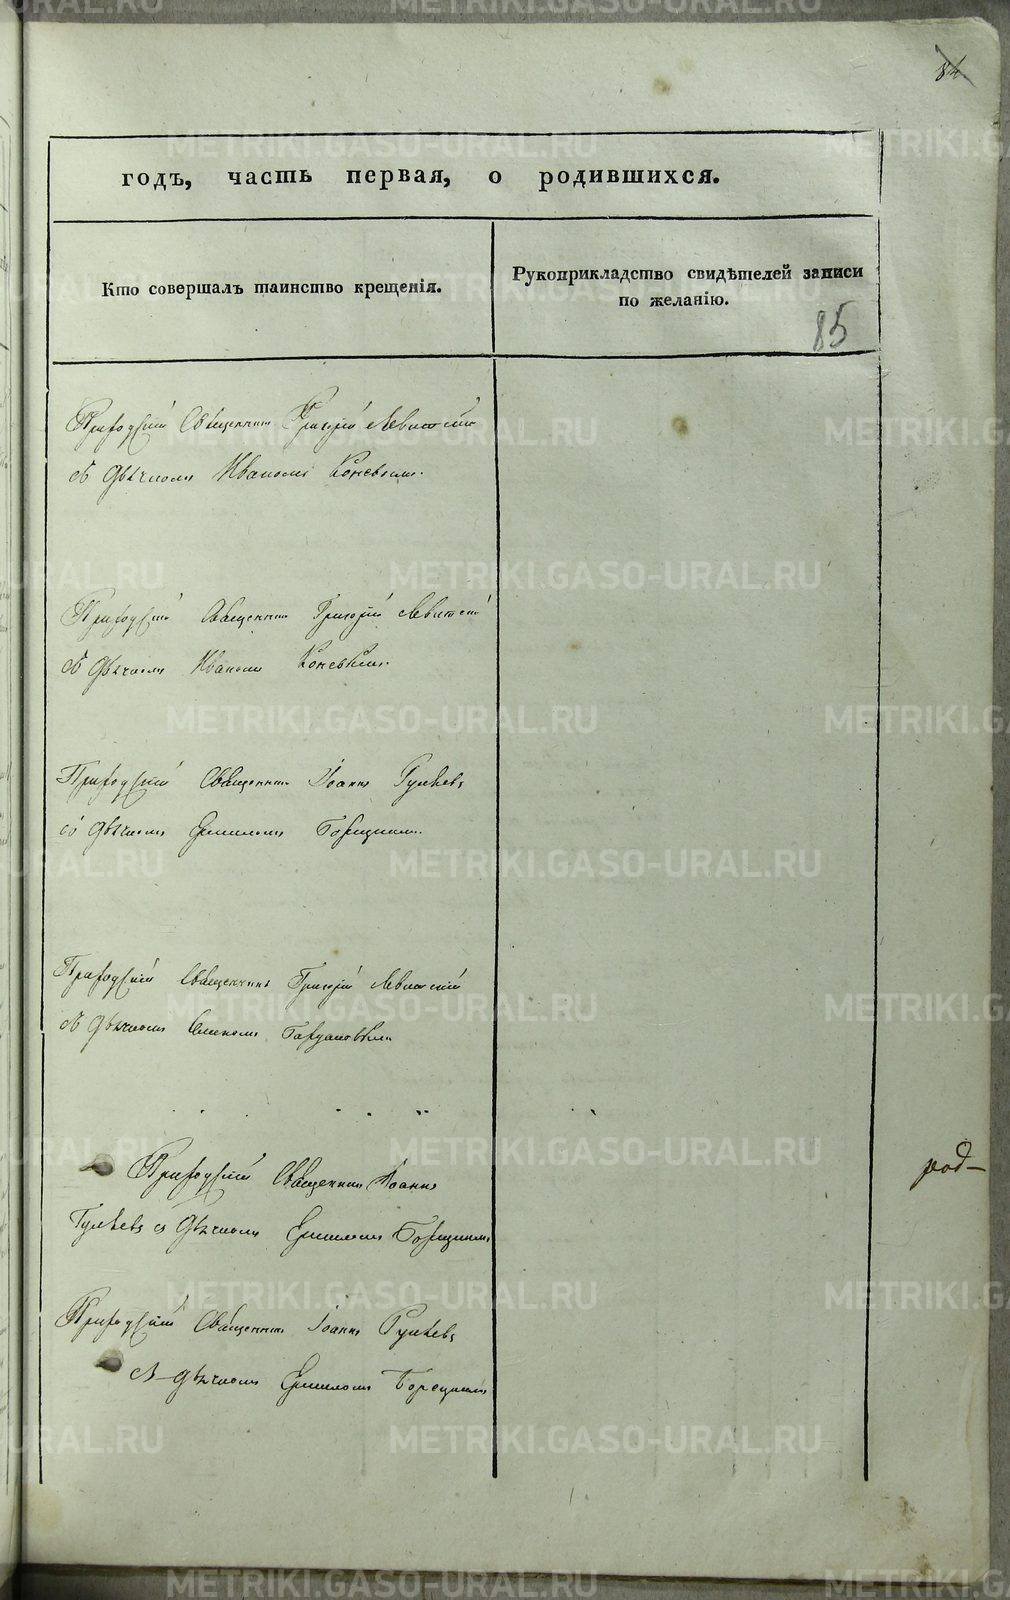 84
годъ, часть первая, о родившихся.
Кто совершалъ таинство крещенія.
Рукоприкладство свидѣтелей записи
по желанію.
85
Приходскій Священникъ Григорій Левитскій
съ Дьячкомъ Иваномъ Коневымъ.
Приходскій Священникъ Григорій Левитскій
съ Дьячкомъ Иваномъ Коневымъ.
Приходскій Священникъ Іоаннъ
со Дьячкомъ Ермиломъ
Приходскій Священникъ Григорій Левитскій
съ Дьячкомъ
Приходскій Священникъ Іоаннъ
съ Дьячкомъ Ермиломъ
Приходскій Священникъ Іоаннъ
съ Дьячкомъ Ермиломъ
род-
METRIKI.GASO-URAL.RU